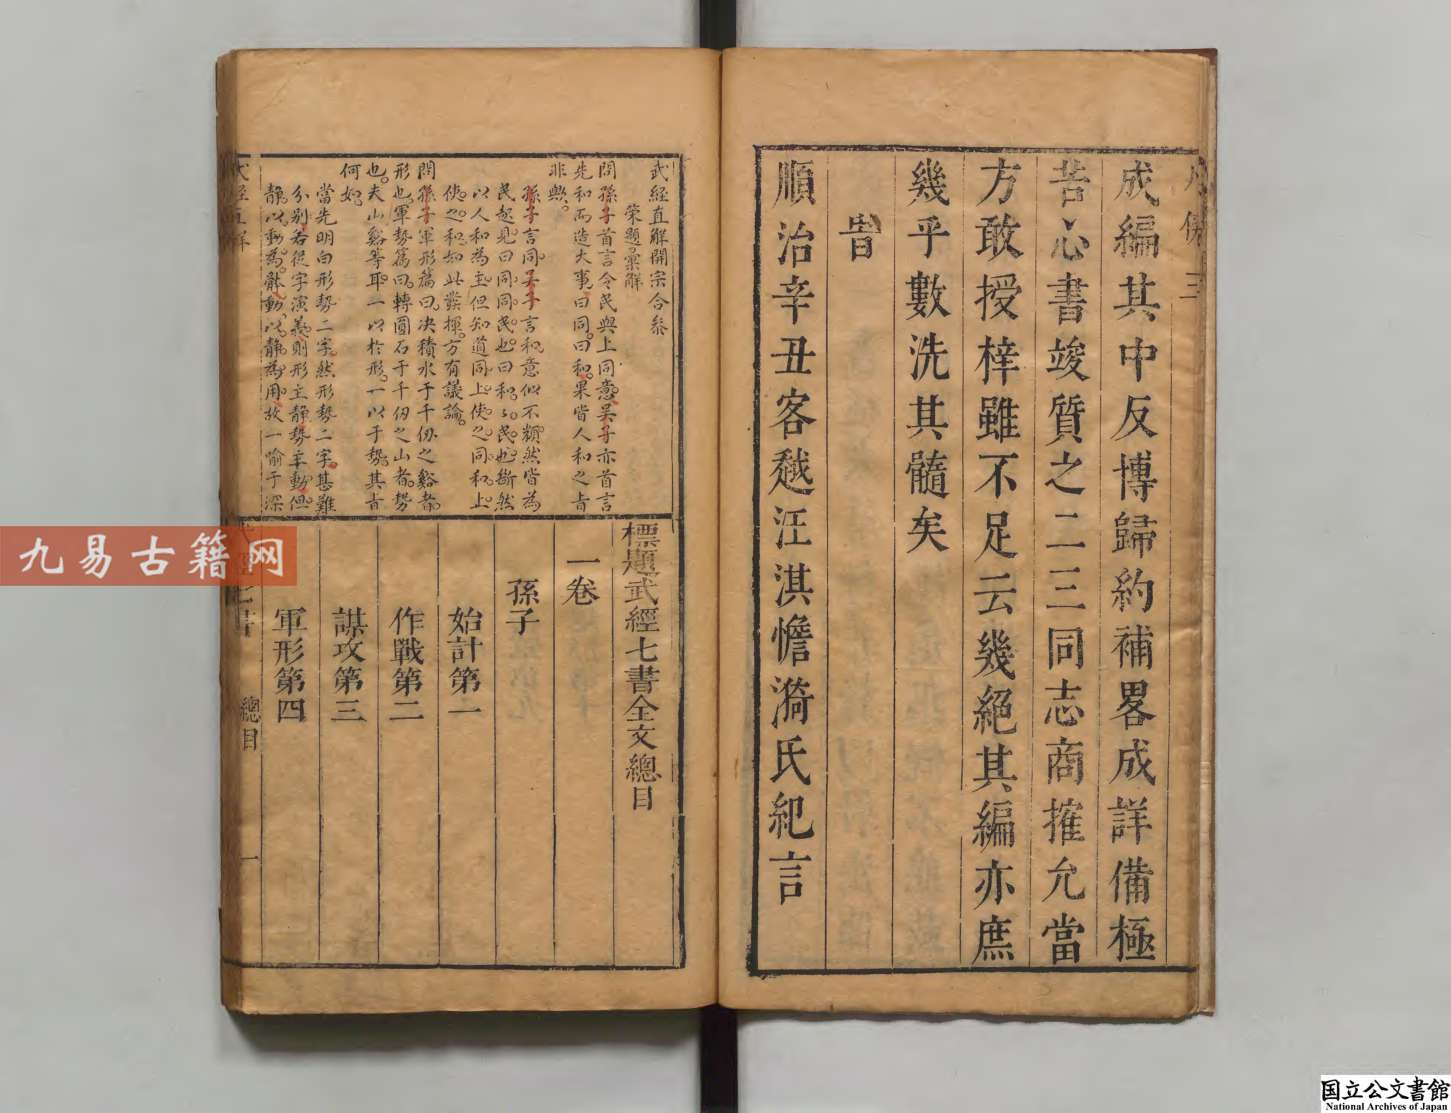 成編其中反博歸約補畧成詳備極
苦心書竣質之二三同志商搉允當
方敢授梓雖不足云幾絕其編亦庶
幾乎數洗其髓矣
旹
順治辛丑客越汪淇憺漪氏紀言
武經直解開宗合叅
策題彙解
問孫子首言令民與上同意吳子亦首言
先和而造大事曰同曰和果皆人和之旨
非與
孫子言同吳子言和意似不類然皆為
民起見曰同同民也曰和和民也斷然
以人和為主但知道同上使之同和上
使之和如此發揮方有議論
問孫子軍形篇曰決積水于千仞之谿者
形也軍勢篇曰轉圓石于千仞之山者勢
也夫山谿等耳一以於形一以于勢其旨
何如
當先明白形勢二字然形勢二字甚難
分別若從字演義則形主靜勢主動但
靜以動為體動以靜為用故一喻于深
標題武經七書全文總目
一卷
孫子
始計第一
作戰第二
謀攻第三
軍形第四
總目
一
九易古籍网
国立公文書館
National Archives of Japan